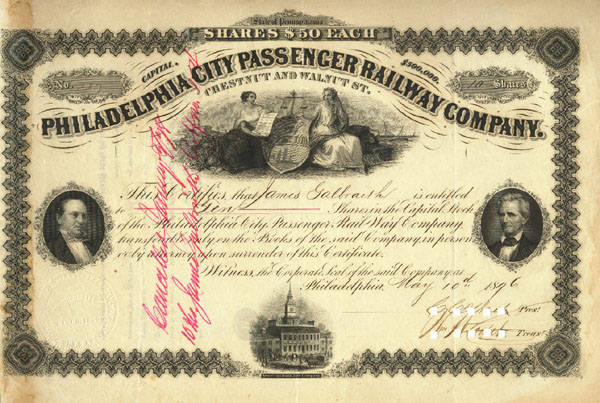 State of Pennsylvania
SHARES $50 EACH
No.
CAPITAL,
$500,000.
10 Shares
PHILADELPHIA CITY PASSENGER RAILWAY COMPANY.
CHESTNUT AND WALNUT ST.
This Certifies that James Galbraith is entitled
to Ten Shares in the Capital Stock
of the Philadelphia City Passenger Rail Way Company
transferable only on the Books of the said Company, in person
or by Attorney upon surrender of this Certificate.
Witness, the Corporate Seal of the said Company at
Philadelphia, May 10th 1896
Pres.
Treas.
American Bank Note Company